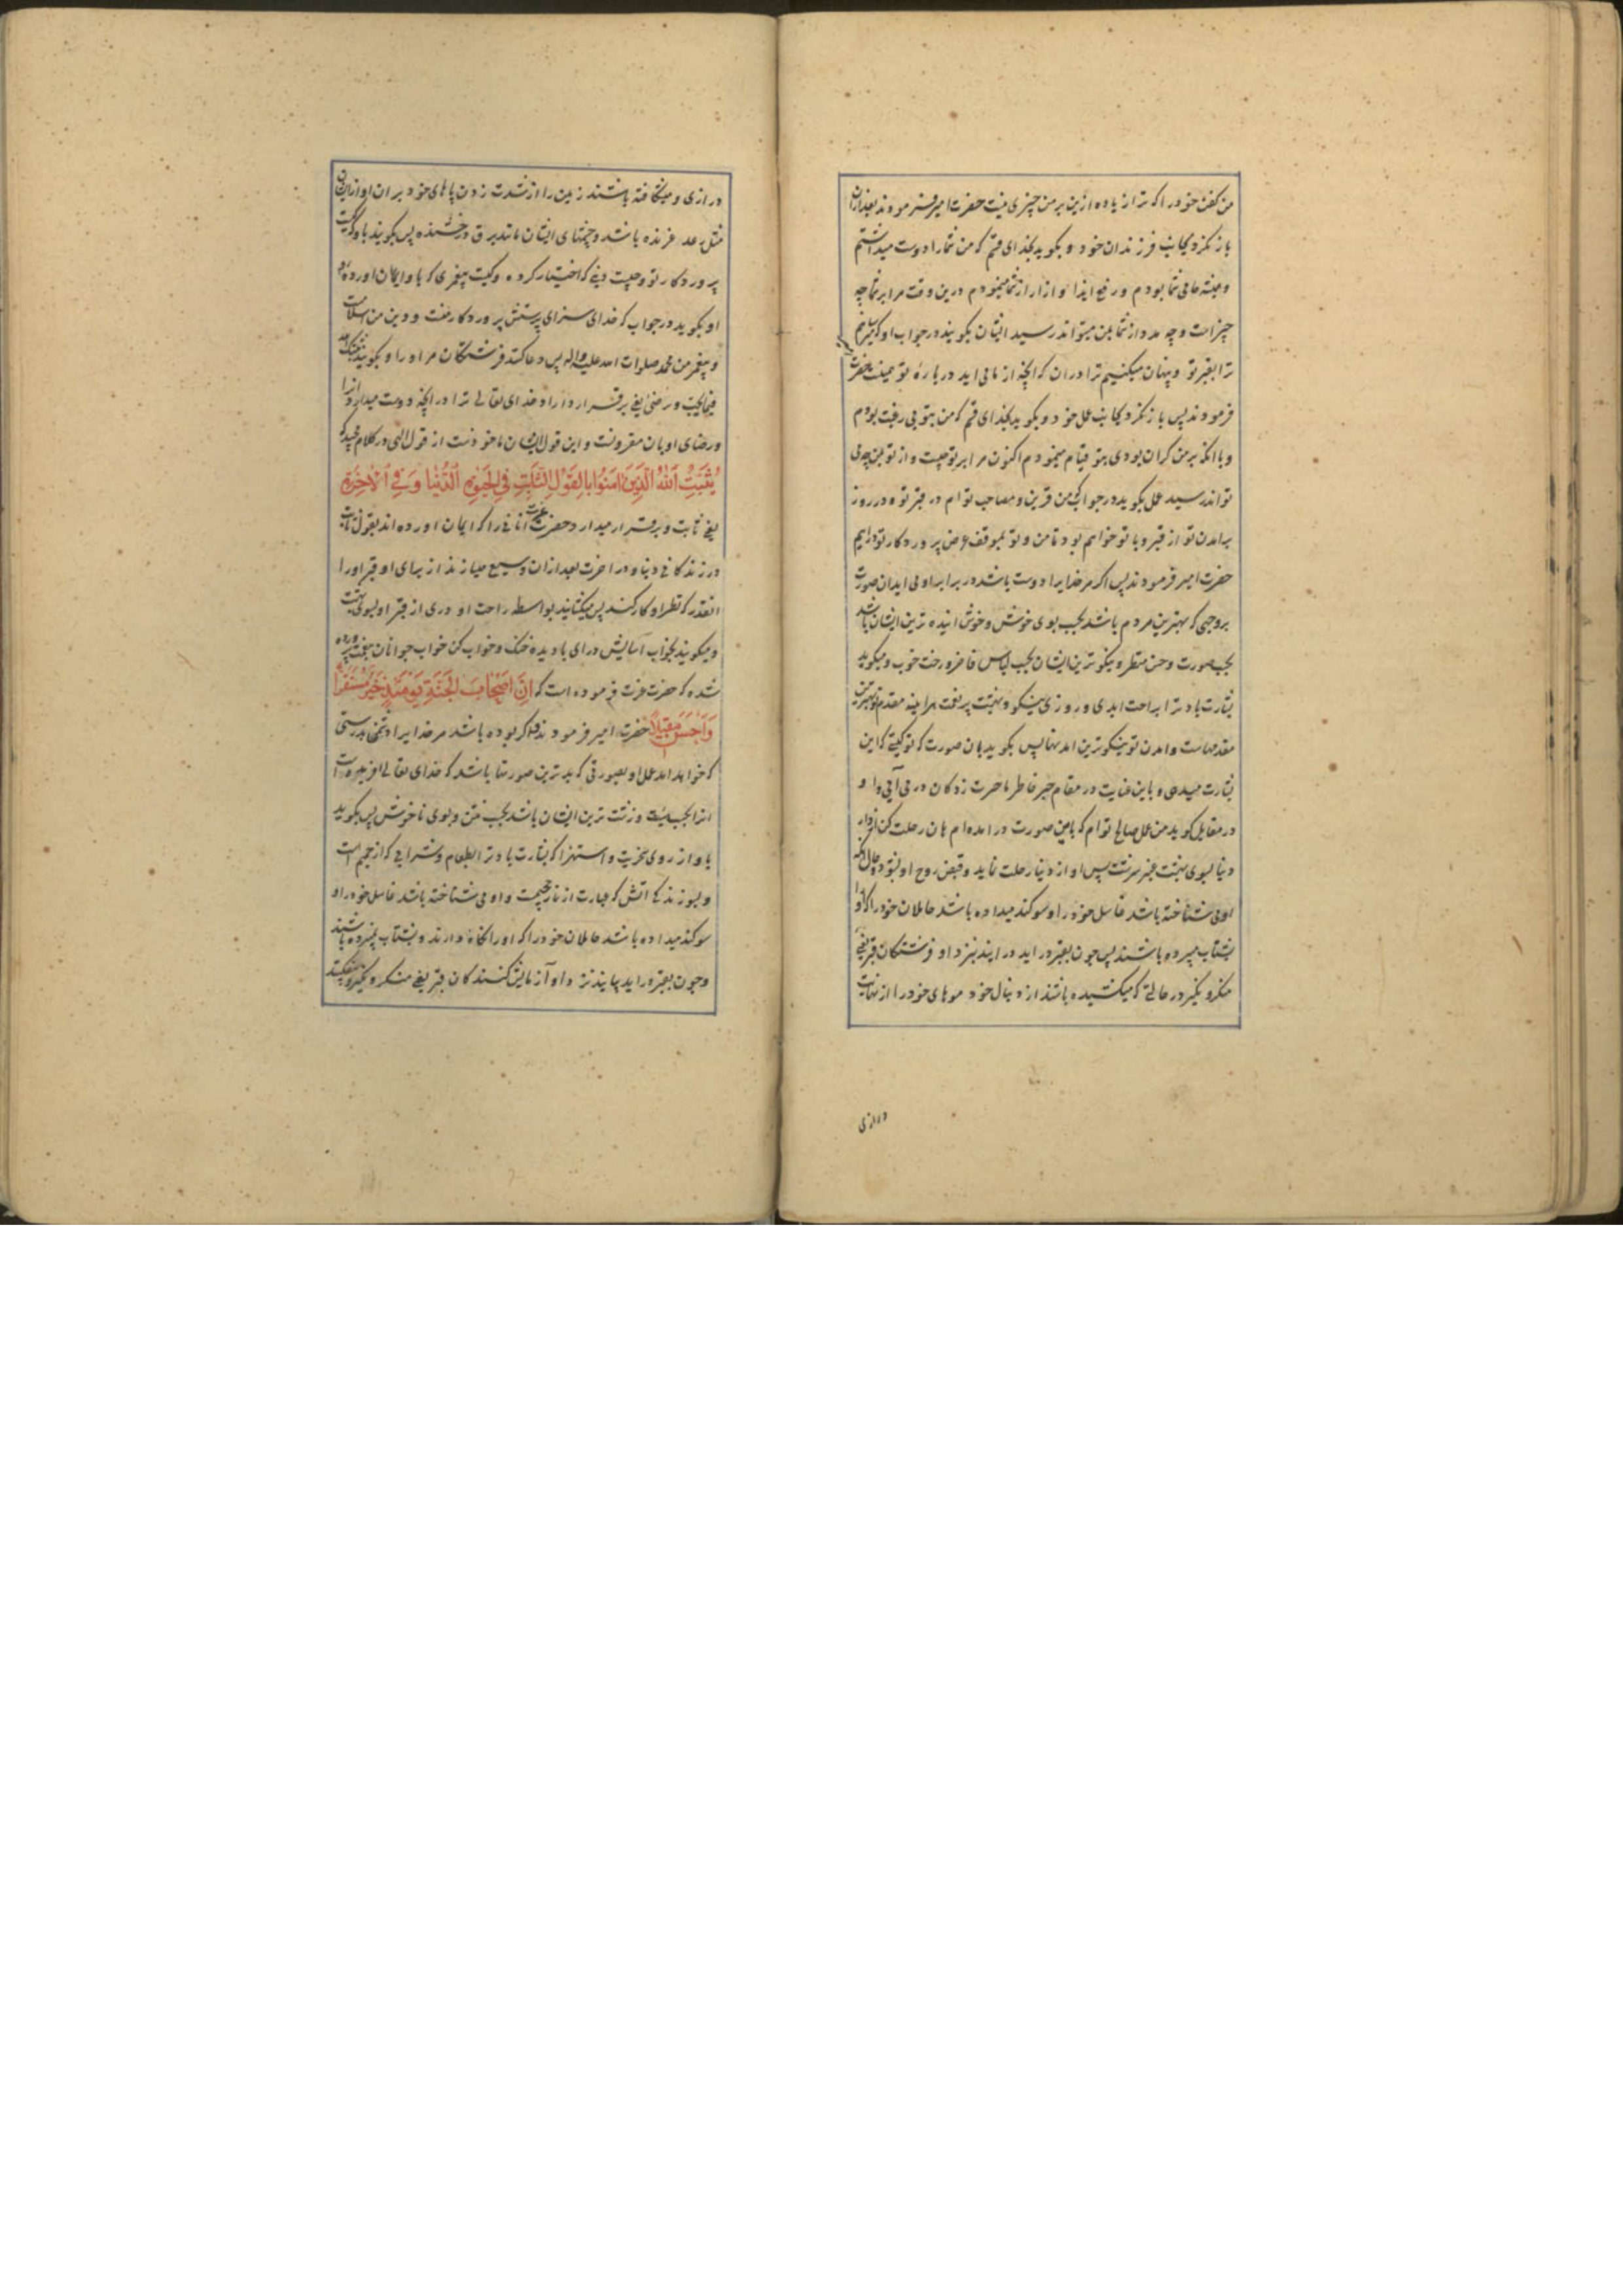 من کفن خود را که ترا زیاده ازین بر من چیزی نیست حضرت امیر فرمودند بعد ازان
باز نکرد بجانب فرزندان خود و بکوید بخدای قسم که من شما را دوست میداشتم
و همیشه حامی شما بودم و رفع ایذا و ازار از شما مینمودم درین وقت مرا بر شما چه
چیز است و چه مدد از شما بمن میتواند رسید ایشان بکویند در جواب او که میرسانیم
ترا بقبر تو و پنهان میکنیم ترا دران که انچه از ما می اید در باره تو همینست حضرت
فرمودند پس باز نکرد بجانب عمل خود و بکوید بخدای قسم که من بتو بی رغبت بودم
و با انکه بر من کران بودی بتو قیام مینمودم اکنون مرا بر تو چیست و از تو بمن چه می
تواند رسید عمل بکوید در جواب که من قرین و مصاحب توام در قبر تو و در روز
برامدن تو از قبر و با تو خواهم بود تا من و تو بموقف عرض پروردکار تو درایم
حضرت امیر فرمودند پس اکر مر خدایرا دوست باشد در برابر او می اید ان صورت
بروجهی که بهترین مردم باشد بحسب بوی خوش و خوش اینده ترین ایشان باشد
بحسب صورت و حسن منظر و نیکوترین ایشان بحسب لباس فاخر و رخت خوب و میکوید
بشارت باد ترا براحت ابدی و روزی نیکو و بهشت پر نعمت هراینه مقدم تو بهترین
مقدمهاست و امدن تو نیکوترین امدنها پس بکوید بان صورت که تو کیستی که این
بشارت میدهی و باین عنایت در مقام جبر خاطر ما حسرت زدکان در می آیی و او
در مقابل کوید من عمل صالح توام که باین صورت در امده ام هان رحلت کن از دار
دنیا بسوی بهشت عنبر سرشت پس او از دنیا رحلت نماید و قبض روح او بشود و حال انکه
او می شناخته باشد غاسل خود را و سوکند میداده باشد حاملان خود را که او را
بشتاب میبرده باشند پس چون بقبر در اید در ایند بنزد او فرشتکان قبر یعنی
منکر و نکیر در حالتی که میکشیده باشند از دنبال خود موهای خود را از نهایت
درازی
درازی و میشکافته باشند زمین را از شدت زدن پاهای خود بران و اواز ایشان
مثل رعد غرنده باشد و چشمهای ایشان مانند برق درخشنده پس بکویند باو کیست
پروردکار تو و چیست دینی که اختیار کرده و کیست پیغمبری که باو ایمان اورده
او بکوید در جواب که خدای سزای پرستش پروردکار منست و دین من اسلامست
و پیغمبر من محمد صلوات الله علیه و اله پس دعا کنند فرشتکان مر او را و بکویند ثبتک الله
فیما یحب و یرضی یعنی برقرار داراد خدای تعالی ترا در انچه دوست میدارد انرا
و رضای او بان مقرونست و این قول ایشان ماخوذست از قول الهی در کلام مجید که
یُثَبِّتُ اللهُ الَّذِینَ امَنُوا بِالقَوْلِ الثَّابِتِ فِی الحَیٰوةِ الدُّنْیَا وَ فِی الْاٰخِرَةِ
یعنی ثابت و برقرار میدارد حضرت عزت انانی را که ایمان اورده اند بقول ثابت
در زندکانی دنیا و در اخرت بعد ازان وسیع میسازند از برای او قبر او را
انقدر که نظر او کار کند پس میکشایند بواسطه راحت او دری از قبر او بسوی بهشت
و میکویند بخواب آسایش درای با دیده خنک و خواب کن خواب جوانان بنعمت پرورده
شده که حضرت عزت فرموده است که اِنَّ اَصْحَابَ الجَنَّةِ یَوْمَئِذٍ خَیْرٌ مُسْتَقَرًّا
وَاَحْسَنُ مَقِیلًا حضرت امیر فرمودند و اکر بوده باشد مر خدایرا دشمن بدرستی
که خواهد امد عمل او بصورتی که بدترین صورتها باشد که خدای تعالی افریده است
انرا بحسب هیئت و زشت ترین ایشان باشد بحسب نتن و بوی ناخوش پس بکوید
باو از روی سخریت و استهزا که بشارت باد ترا بطعام و شرابی که از حمیم است
و بسوزندکی اتش که عبارت از نار جحیمست و او می شناخته باشد غاسل خود را و
سوکند میداده باشد حاملان خود را که او را نکاه دارند و بشتاب نمیبرده باشند
و چون بقبر در اید بیایند نزد او آزمایش کنندکان قبر یعنی منکر و نکیر و بیفکنند